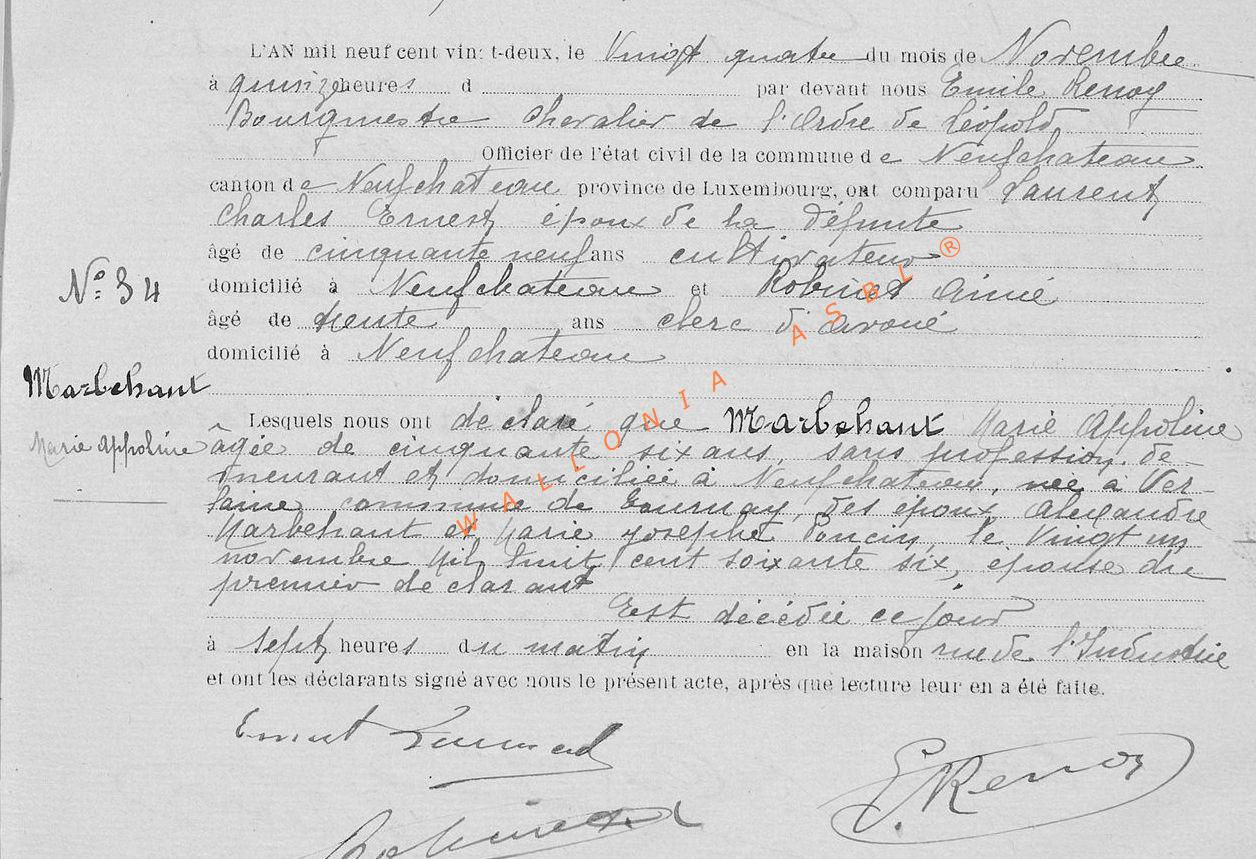 L'AN mil neuf cent vingt-deux, le Vingt quatre du mois de Novembre
à quinze heures d par devant nous Emile Renoy
Bourgmestre Chevalier de l'Ordre de Léopold
Officier de l'état civil de la commune de Neufchateau
canton de Neufchateau province de Luxembourg, ont comparu Laurent
Charles Ernest époux de la défunte
âgé de cinquante neuf ans cultivateur
N° 34
domicilié à Neufchateau et Robinet Aimé
âgé de trente ans clerc d'avoué
domicilié à Neufchateau
Marbehant
Lesquels nous ont déclaré que Marbehant Marie Appoline
Marie Appoline
âgée de cinquante six ans, sans profession de-
meurant et domiciliée à Neufchateau, née à Ver-
laine commune de Tournay, des époux Alexandre
Marbehant et Marie Josephe Poncin, le Vingt un
novembre Mil huit cent soixante six, épouse du
premier declarant
Est décédée ce jour
à sept heures du matin en la maison rue de l'Industrie
et ont les déclarants signé avec nous le présent acte, après que lecture leur en a été faite.
Ernest Laurent
E. Renoy
Robinet
WALLONIA ASBL ®